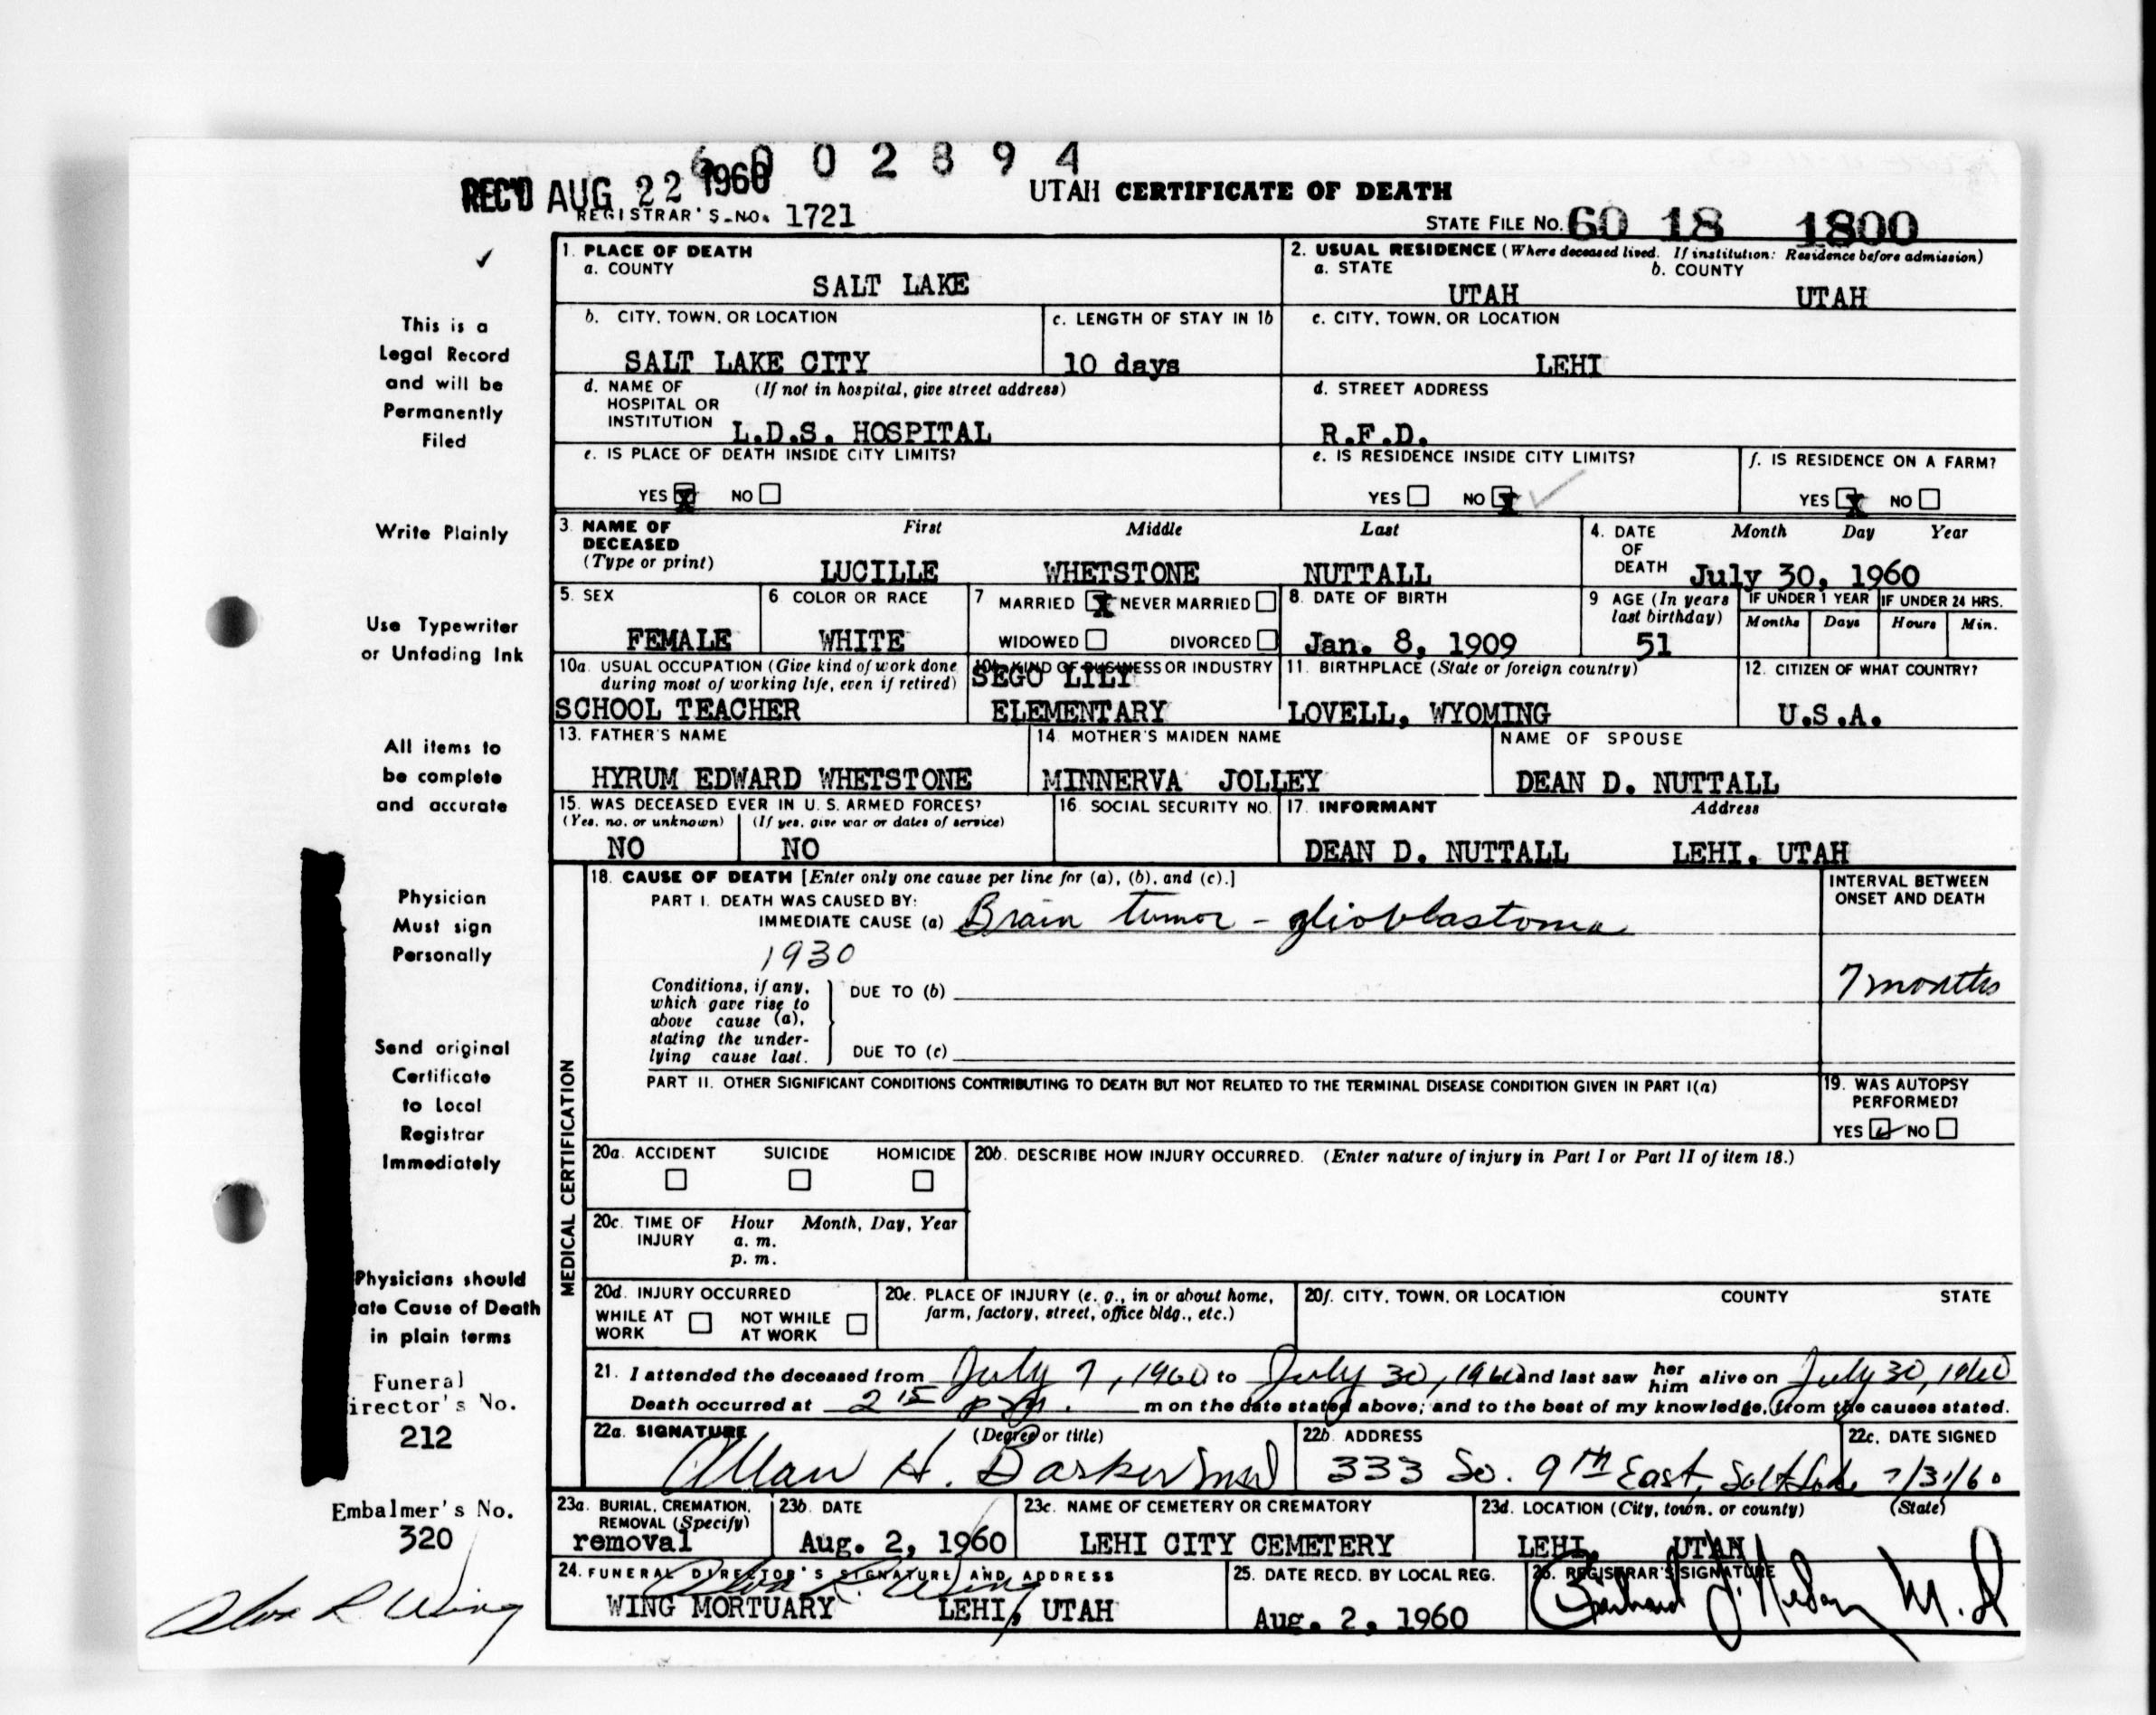 6002894
REC'D AUG 22 1960
UTAH CERTIFICATE OF DEATH
REGISTRAR'S NO. 1721
STATE FILE NO. 60 18 1800
This is a
Legal Record
and will be
Permanently
Filed
Write Plainly
Use Typewriter
or Unfading Ink
All items to
be complete
and accurate
Physician
Must sign
Personally
Send original
Certificate
to Local
Registrar
Immediately
Physicians should
ate Cause of Death
in plain terms
Funeral
irector's No.
212
Embalmer's No.
320
Alva R Wing
1. PLACE OF DEATH
a. COUNTY
SALT LAKE
2. USUAL RESIDENCE (Where deceased lived. If institution: Residence before admission)
a. STATE b. COUNTY
UTAH UTAH
b. CITY, TOWN, OR LOCATION
SALT LAKE CITY
c. LENGTH OF STAY IN 1b
10 days
c. CITY, TOWN, OR LOCATION
LEHI
d. NAME OF (If not in hospital, give street address)
HOSPITAL OR
INSTITUTION L.D.S. HOSPITAL
d. STREET ADDRESS
R.F.D.
e. IS PLACE OF DEATH INSIDE CITY LIMITS?
YES X NO
e. IS RESIDENCE INSIDE CITY LIMITS?
YES NO X
f. IS RESIDENCE ON A FARM?
YES X NO
3. NAME OF First Middle Last
DECEASED
(Type or print) LUCILLE WHETSTONE NUTTALL
4. DATE Month Day Year
OF
DEATH July 30, 1960
5. SEX
FEMALE
6 COLOR OR RACE
WHITE
7 MARRIED X NEVER MARRIED
WIDOWED DIVORCED
8. DATE OF BIRTH
Jan. 8, 1909
9 AGE (In years
last birthday)
51
IF UNDER 1 YEAR IF UNDER 24 HRS.
Months Days Hours Min.
10a. USUAL OCCUPATION (Give kind of work done
during most of working life, even if retired)
SCHOOL TEACHER
10b. KIND OF BUSINESS OR INDUSTRY
SEGO LILY
ELEMENTARY
11. BIRTHPLACE (State or foreign country)
LOVELL, WYOMING
12. CITIZEN OF WHAT COUNTRY?
U.S.A.
13. FATHER'S NAME
HYRUM EDWARD WHETSTONE
14. MOTHER'S MAIDEN NAME
MINNERVA JOLLEY
NAME OF SPOUSE
DEAN D. NUTTALL
15. WAS DECEASED EVER IN U. S. ARMED FORCES?
(Yes, no, or unknown) (If yes, give war or dates of service)
NO NO
16. SOCIAL SECURITY NO.
17. INFORMANT Address
DEAN D. NUTTALL LEHI, UTAH
MEDICAL CERTIFICATION
18. CAUSE OF DEATH [Enter only one cause per line for (a), (b), and (c).]
PART I. DEATH WAS CAUSED BY:
IMMEDIATE CAUSE (a) Brain tumor - glioblastoma
1930
Conditions, if any,
which gave rise to
above cause (a),
stating the under-
lying cause last.
DUE TO (b)
DUE TO (c)
INTERVAL BETWEEN
ONSET AND DEATH
7 months
PART II. OTHER SIGNIFICANT CONDITIONS CONTRIBUTING TO DEATH BUT NOT RELATED TO THE TERMINAL DISEASE CONDITION GIVEN IN PART I(a)
19. WAS AUTOPSY
PERFORMED?
YES NO
20a. ACCIDENT SUICIDE HOMICIDE
20b. DESCRIBE HOW INJURY OCCURRED. (Enter nature of injury in Part I or Part II of item 18.)
20c. TIME OF Hour Month, Day, Year
INJURY a. m.
p. m.
20d. INJURY OCCURRED
WHILE AT NOT WHILE
WORK AT WORK
20e. PLACE OF INJURY (e. g., in or about home,
farm, factory, street, office bldg., etc.)
20f. CITY, TOWN, OR LOCATION COUNTY STATE
21. I attended the deceased from July 7, 1960 to July 30, 1960 and last saw her him alive on July 30, 1960
Death occurred at 2 15 p m. m on the date stated above; and to the best of my knowledge, from the causes stated.
22a. SIGNATURE (Degree or title)
Allan H. Barker md
22b. ADDRESS
333 So. 9th East, Salt Lake
22c. DATE SIGNED
7/31/60
23a. BURIAL, CREMATION,
REMOVAL (Specify)
removal
23b. DATE
Aug. 2, 1960
23c. NAME OF CEMETERY OR CREMATORY
LEHI CITY CEMETERY
23d. LOCATION (City, town, or county) (State)
LEHI, UTAH
24. FUNERAL DIRECTOR'S SIGNATURE AND ADDRESS
Alva R. Wing
WING MORTUARY LEHI, UTAH
25. DATE RECD. BY LOCAL REG.
Aug. 2, 1960
26. REGISTRAR'S SIGNATURE
M.D